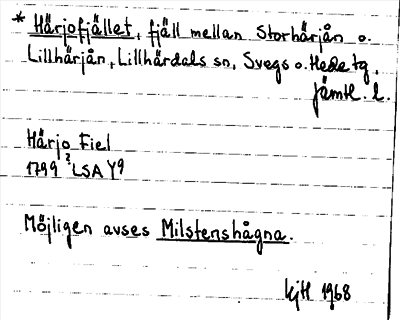 * Härjofjället, fjäll mellan Storhärjån o.
Lillhärjån, Lillhärdals sn, Svegs o. Hede tg,
Jämtl. l.
Härjo Fiel
1799 ? LSA Y9
Möjligen avses Milstenshågna.
kjH 1968